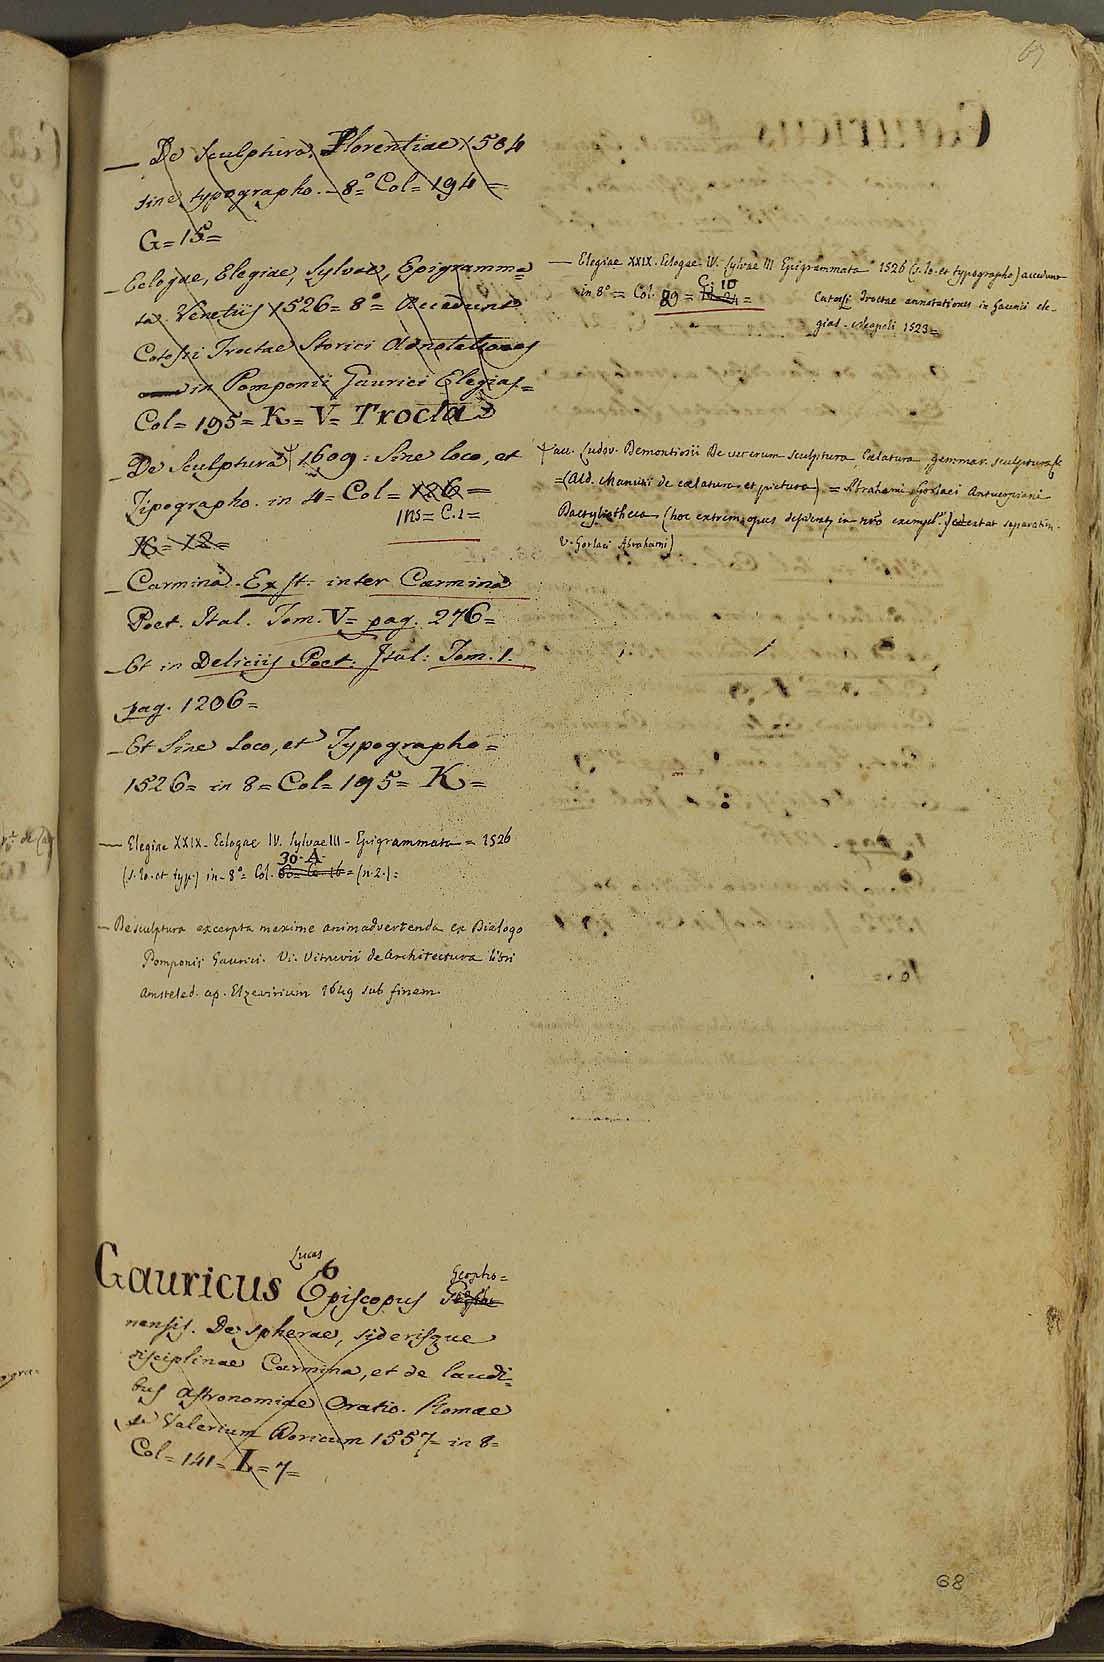 67
— De sculptura, Florentiae, 1504
sine typographo. - 8º Col= 194 =
G= 15=
— Eclogae, Elegiae, Sylvae, Epigramma=
ta. Venetiis 1526= 8º= Accedunt
Cotossi Troctae Storici Adnotationes
in Pomponii Gaurici Elegias=
Col= 195= K= V= Trocta
— De Sculptura 1609: Sine loco, et
Tipographo. in 4= Col= 126=
ins= C.1=
K= 12=
— Carmina. Exst: inter Carmina
Poet. Ital. Tom. V= pag. 276=
— Et in Deliciis Poet: Ital: Tom. 1.
pag. 1206=
— Et Sine Loco, et Typographo=
1526= in 8= Col= 195= K=
— Elegiae XXIX. Eclogae IV. Sylvae III - Epigrammata = 1526
30. A.
(s. lo. et typ.) in - 8º= Col. = (n. 2.)=
— De sculptura excerpta maxime animadvertenda ex Dialogo
Pomponii Gaurici. Vi. Vitruvii de Architectura libri
Amsteled. ap. Elzevirium 1649 sub finem.
— Elegiae XXIX. Eclogae. IV. Sylvae III Epigrammata 1526 (s. lo. et typographo) accedunt
C. 10
in 8º= Col. 89=
Catossi Troctae annotationes in Gaurici ele-
gias. Neapoli 1523=
acc. Ludov. Demontiosii De veterum sculptura, Caelatura, gemmar. sculptura &c
=(Ald. Manutii de caelatura et pictura) = Abrahami Gorlaei Antuerpiani
Dactyliotheca (hoc extrem. opus desiderat. in nro exempl.) extat separatim.
V. Gorlaei Abrahami)
Lucas
Gauricus Episcopus
Geopho=
nensis. De spherae, siderisque
disciplinae Carmina, et de laudi=
bus astronomiae Oratio. Romae
Valerium Doricum 1557= in 8=
Col= 141= L= 7=
68